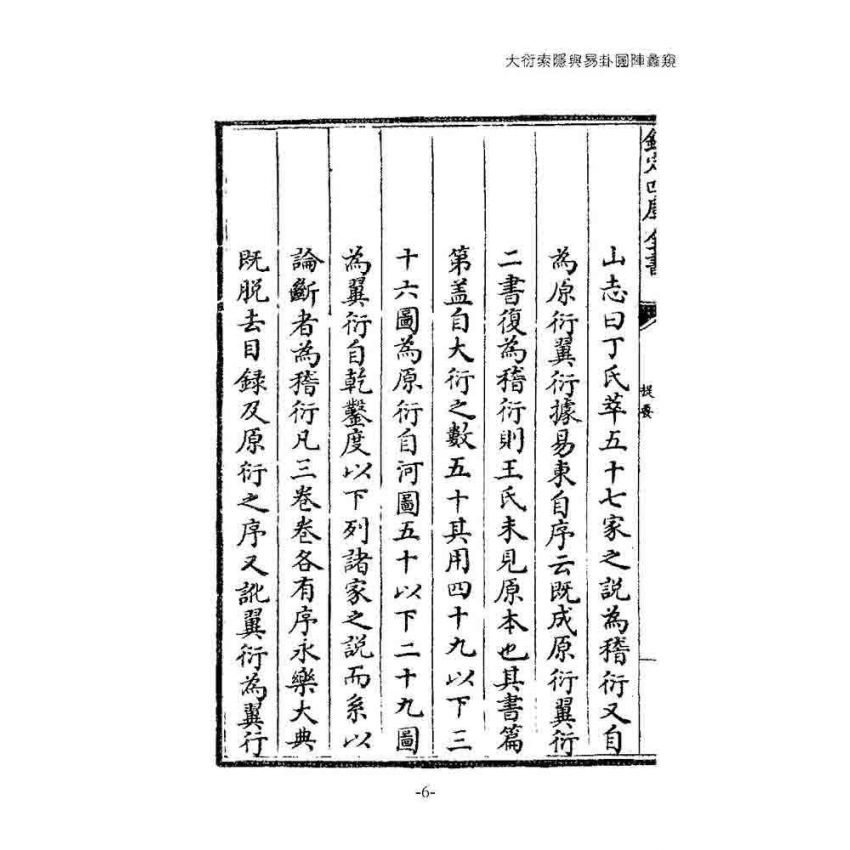 大衍索隱與易卦圓陣蠡窺
欽定四庫全書
提要
山志曰丁氏萃五十七家之說為稽衍又自
為原衍翼衍據易東自序云既成原衍翼衍
二書復為稽衍則王氏未見原本也其書篇
第盖自大衍之數五十其用四十九以下三
十六圖為原衍自河圖五十以下二十九圖
為翼衍自乾鑿度以下列諸家之説而系以
論斷者為稽衍凡三卷卷各有序永樂大典
既脱去目録及原衍之序又訛翼衍為翼行
-6-